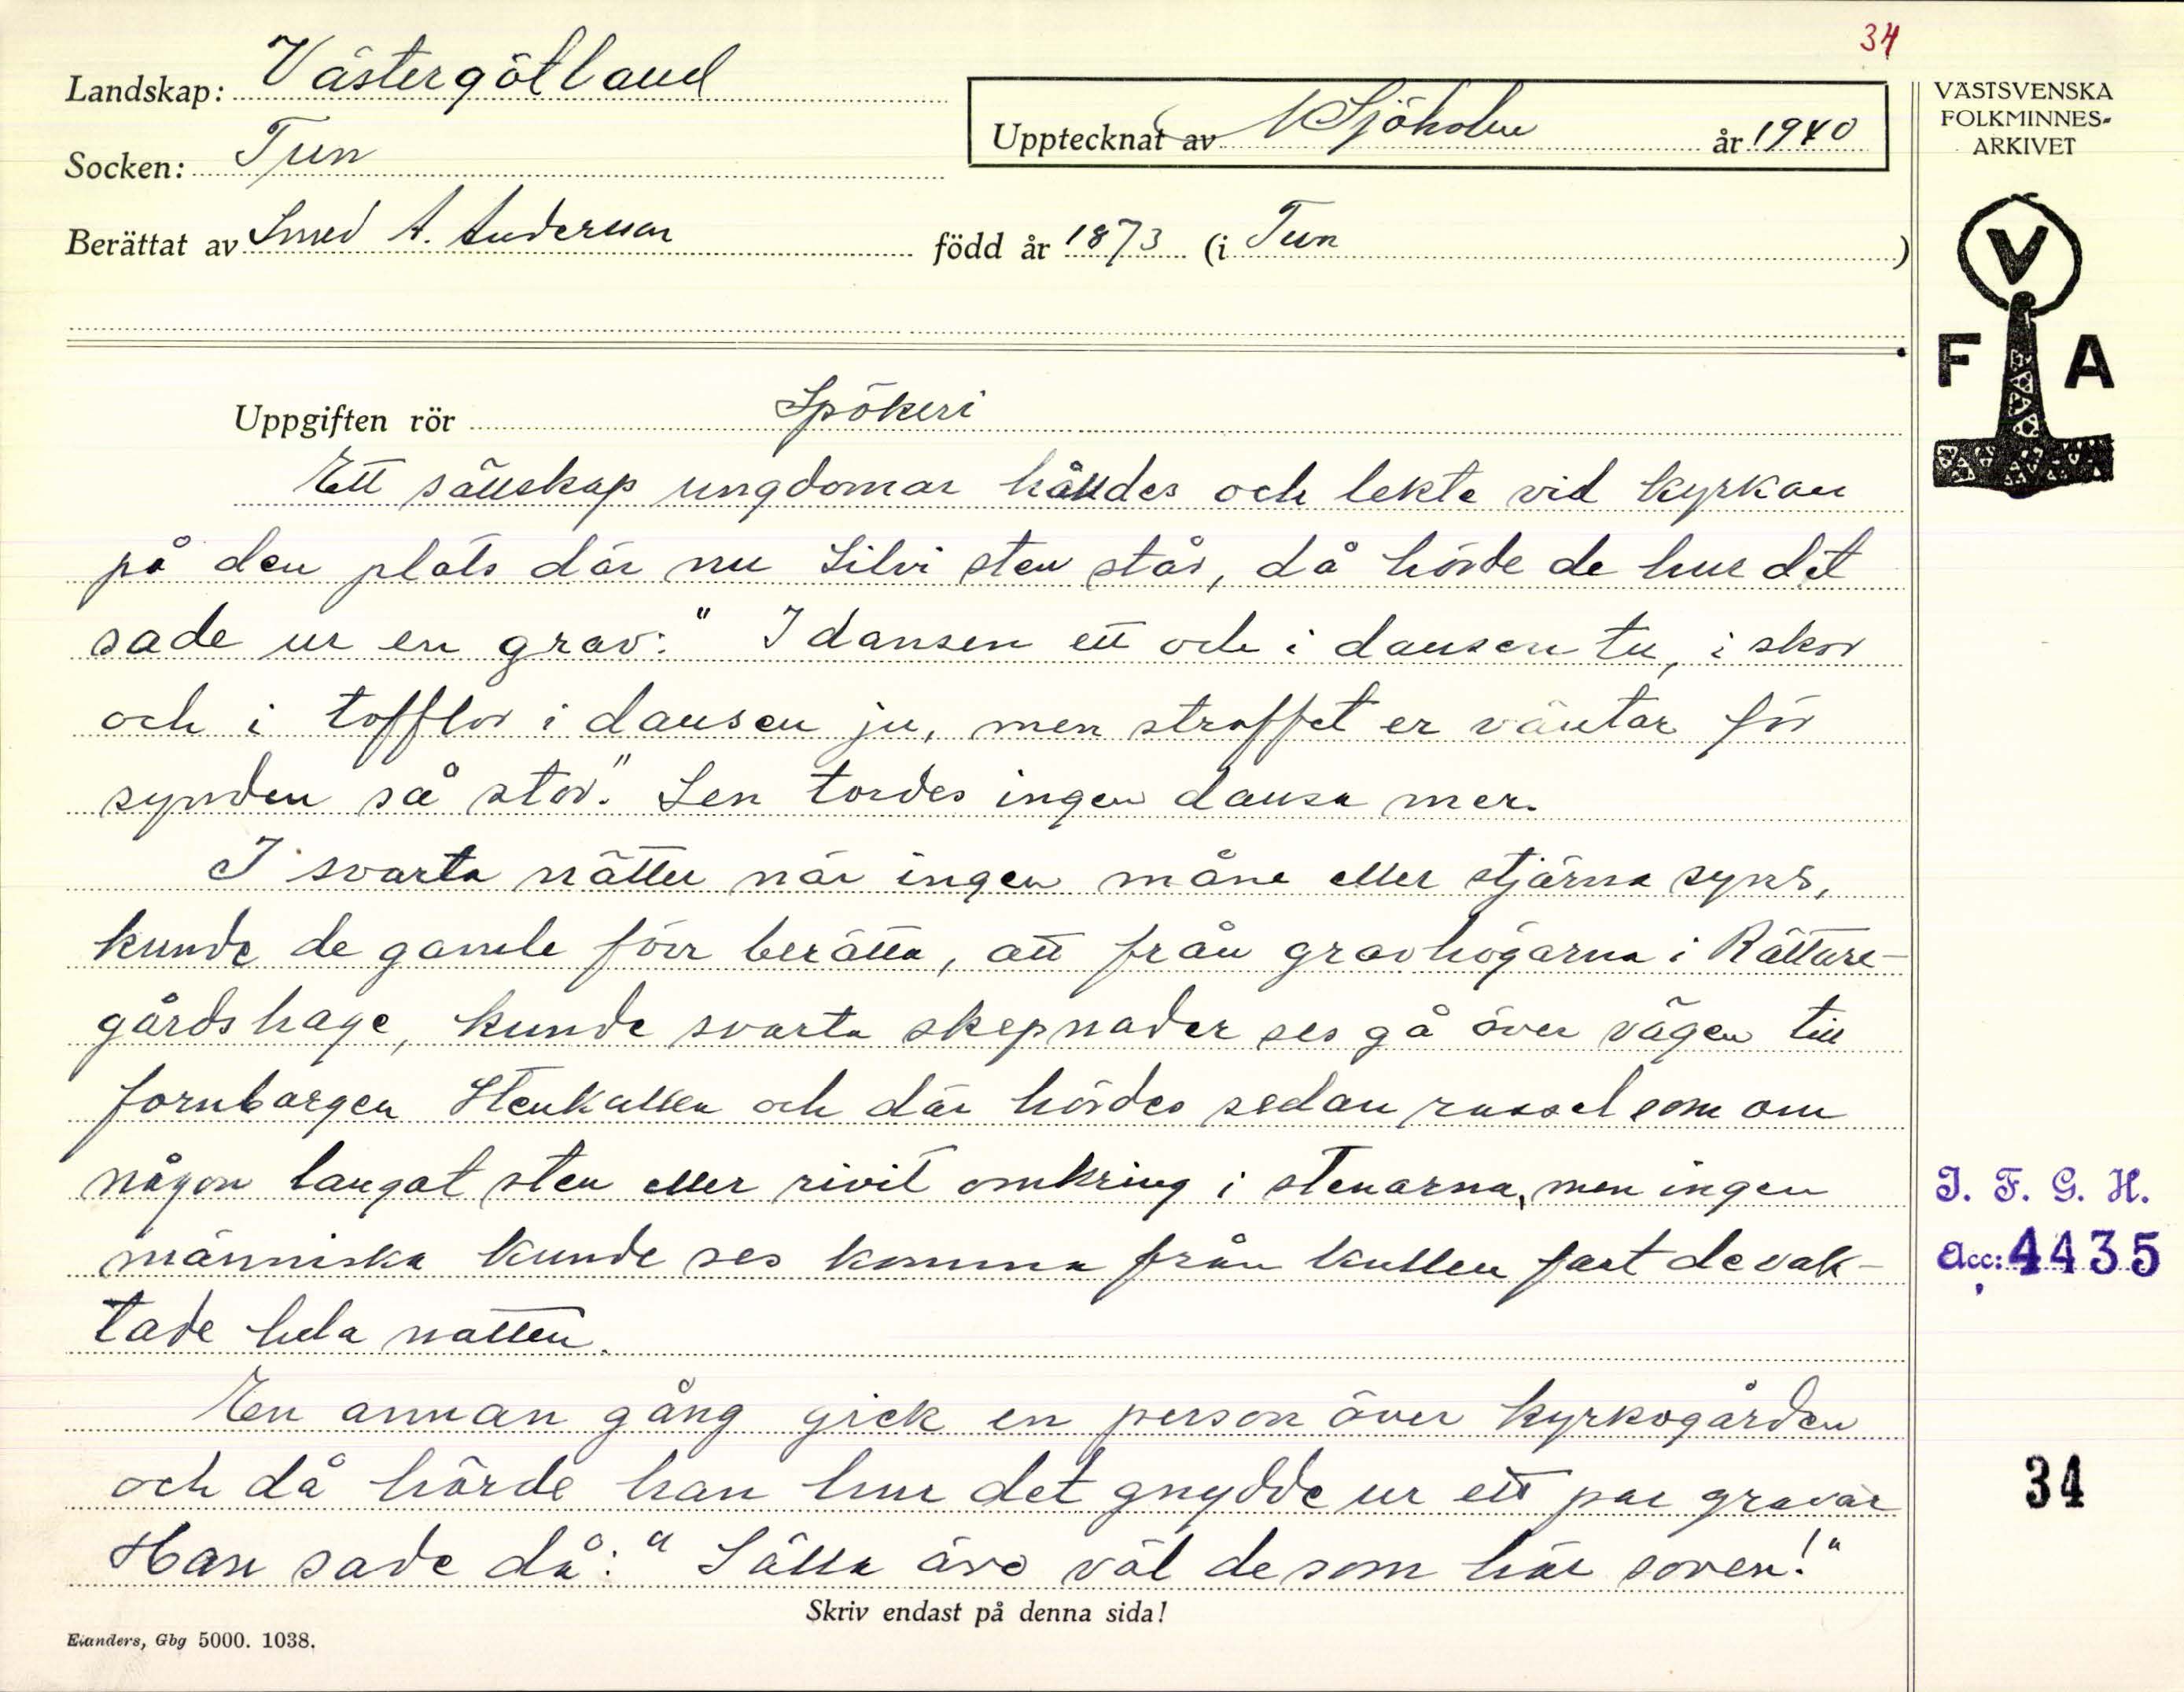 34
Landskap: Västergötland
Upptecknat av V Sjöholm år 1940
VÄSTSVENSKA
FOLKMINNES-
ARKIVET
Socken: Tun
Berättat av Smed A. Andersson född år 1873 (i Tun )
V
F A
Uppgiften rör Spökeri
Ett sällskap ungdomar hålldes och lekte vid kyrkan
på den plats där nu Silvi sten står, då hörde de hur det
sade ur en grav: " I dansen ett och i dansen tu, i skor
och i tofflor i dansen ju, men straffet er väntar för
synden så stor." Sen tordes ingen dansa mer.
I svarta nätter när ingen måne eller stjärna syns,
kunde de gamle förr berätta, att från gravhögarna i Rättare-
gårdshage, kunde svarta skepnader ses gå över vägen till
fornborgen Stenkullen och där hördes sedan rassel som om
någon langat sten eller rivit omkring i stenarna, men ingen
människa kunde ses komma från kullen fast de vak-
tade hela natten.
En annan gång gick en person över kyrkogården
och då hörde han hur det gnydde ur ett par gravar
Han sade då: " Sälla äro väl de som här soven!"
J. F. G. H.
Acc: 4435
34
Skriv endast på denna sida!
Elanders, Gbg 5000. 1038.